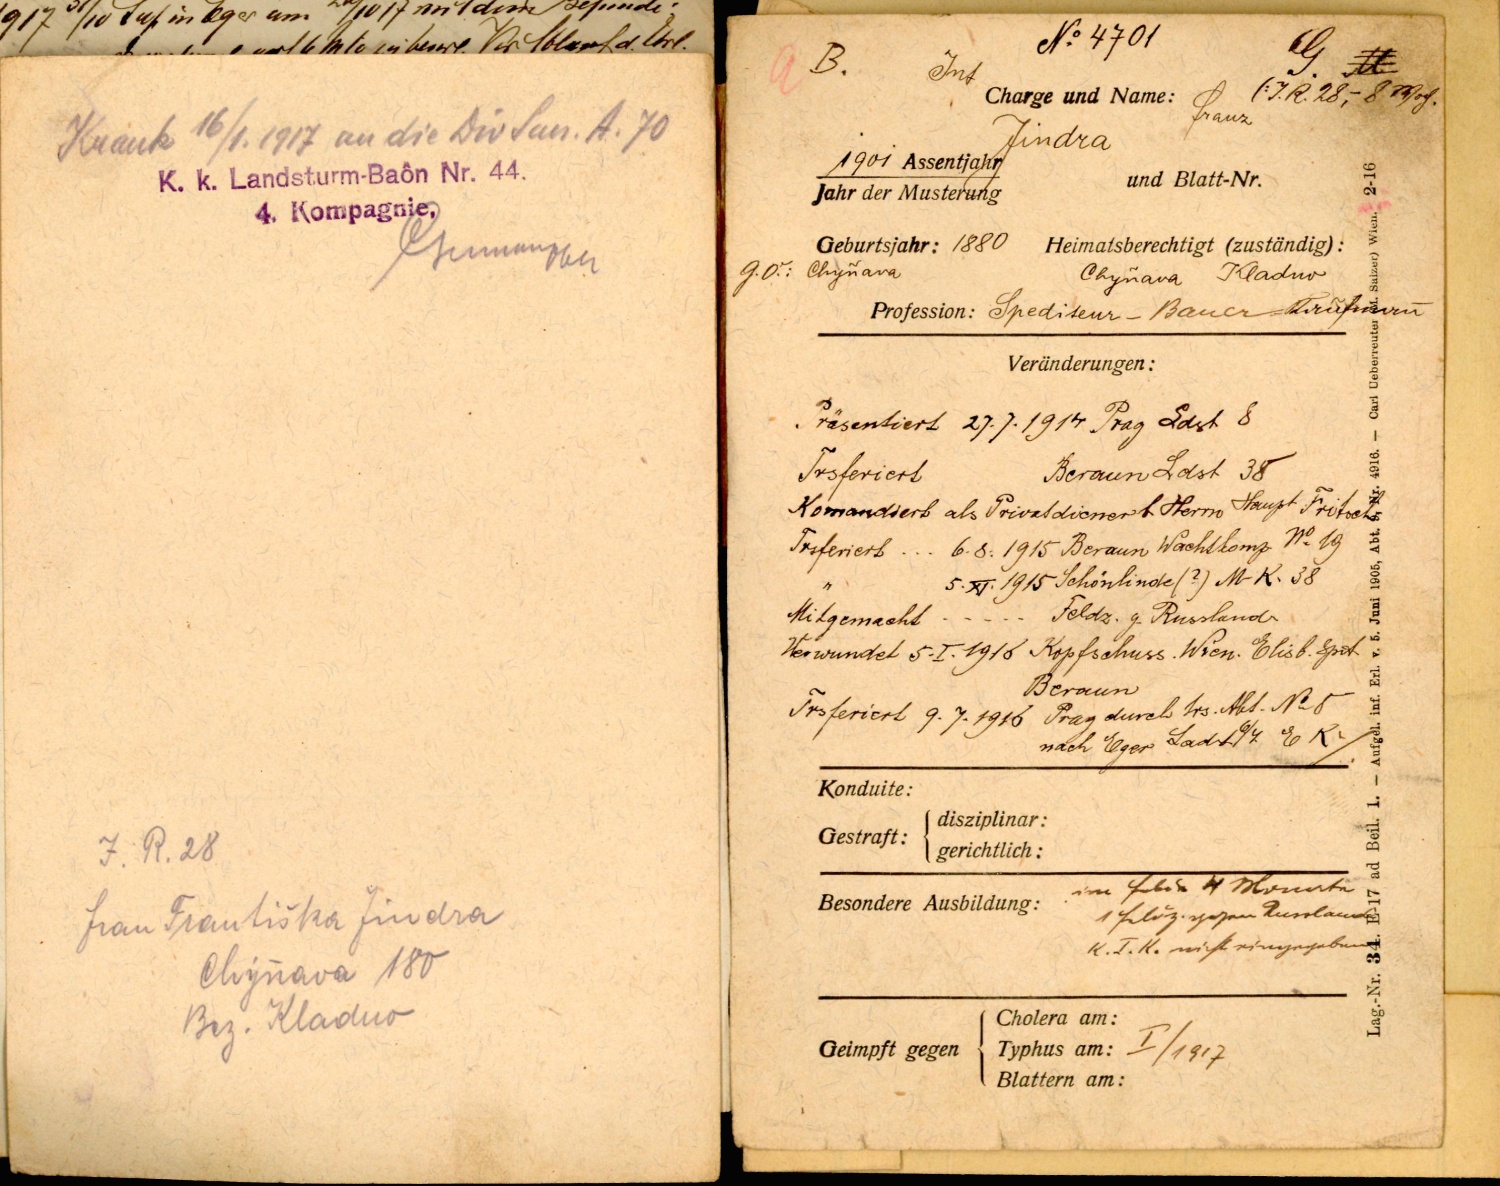 1917 31/10 in Eger am 20/10 17 mit dem
Krank 16/1. 1917 an die Div San. A. 70
K. k. Landsturm-Baôn Nr. 44.
4. Kompagnie.
J. R. 28
Frau Františka Jindra
Chýňava 180
Bez. Kladno
No 4701
B. Inf G.
Charge und Name: Franz (: J. R. 28,- 8
Jindra
1901 Assentjahr
Jahr der Musterung und Blatt-Nr.
Geburtsjahr: 1880 Heimatsberechtigt (zuständig):
g. O.: Chyňava Chyňava Kladno
Profession: Spediteur - Bauer - Kaufmann
Veränderungen:
Präsentiert 27.7.1914 Prag Ldst 8
Trsferiert Beraun Ldst 38
Komandiert als Privatdiener b Herrn Haupt Fritsch
Trsferiert ... 6.8. 1915 Beraun Wachtkomp No 19
" 5.XI. 1915 Schönlinde (?) M-K. 38
Mitgemacht - - - - - Feldz. g. Russland
Verwundet 5.I.1916 Kopfschuss. Wien. Elisb. Spit
Beraun
Trsferiert 9.7.1916 Prag durch trs. Abt. No 8
nach Eger Ladst 6/7 E K.
Konduite:
Gestraft: disziplinar:
gerichtlich:
Besondere Ausbildung: im Felde 4 Monate
1 Feldz. gegen Russland
K. T. K. nicht eingegeben
Geimpft gegen Cholera am:
Typhus am: I/1917
Blattern am:
Lag.-Nr. 34. E-17 ad Beil. 1. — Aufgel. inf. Erl. v. 5. Juni 1905, Abt. 5, Nr. 4916. — Carl Ueberreuter (M. Salzer) Wien. 2-16